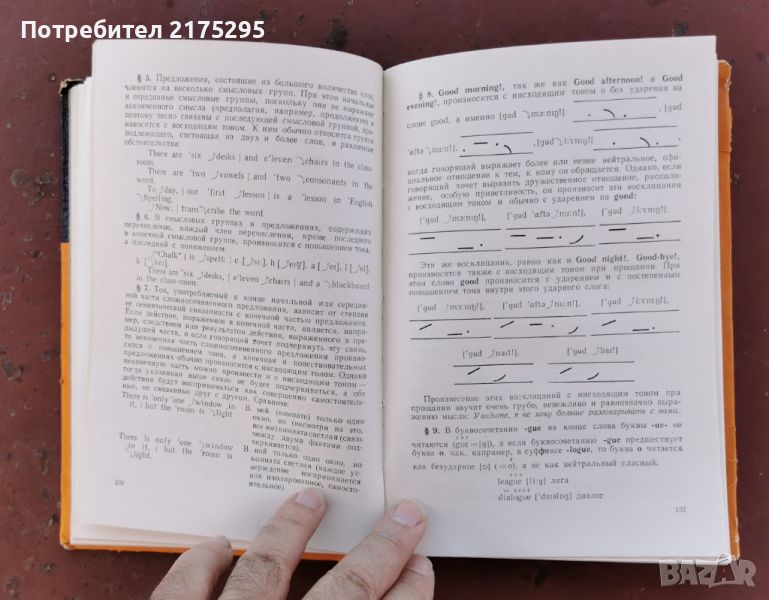 Потребител 2175295
§ 5. Предложения, состоящие из большого количества слов,
членятся на несколько смысловых групп. При этом начальные
и серединные смысловые группы, поскольку они не выражают
законченного смысла (предполагая, например, продолжение) и
поэтому тесно связаны с последующей смысловой группой, про-
износятся с восходящим тоном. К ним обычно относится группа
подлежащего, состоящая из двух и более слов, и различные
обстоятельства:
There are ˈsix desks | and eˈleven chairs in the class-
room.
There are ˈtwo vowels | and ˈtwo consonants in the
word.
To day, | our ˈfirst lesson | is a ˈlesson in ˈEnglish
Spelling.
Now, | tran cribe the word.
§ 6. В смысловых группах и предложениях, содержащих
перечисление, каждый член перечисления, кроме последнего
в конечной смысловой группе, произносится с повышением тона,
а последний с понижением:
"Chalk" | is spelt: | c [ si:], h [ eitʃ], a [ ei], l [ el],
k [ kei].
There are ˈsix desks, | eˈleven chairs | and a blackboard
in the class-room.
§ 7. Тон, употребляемый в конце начальной или середин-
ной части сложносочиненного предложения, зависит от степени
семантической связанности с конечной частью предложения.
Если действие, выраженное в конечной части, является, напри-
мер, следствием или результатом действия, выраженного в пре-
дыдущей части, и если говорящий хочет подчеркнуть эту связь,
то неконечная часть сложносочиненного предложения произно-
сится с повышением тона, а конечная в повествовательных
предложениях обычно произносится с нисходящим тоном. Однако
неконечную часть можно произнести и с нисходящим тоном —
тогда указанная выше связь не будет подчеркиваться, а оба
действия будут восприниматься как совершенно самостоятель-
ные, не связанные друг с другом. Сравните:
There is ˈonly one window in
it, | but the ˈroom is light.
В ней (комнате) только одно
окно, но (несмотря на это,
все же) комната светлая (связь
между двумя фактами под-
черкивается).
There is only ˈone window
in it, | but the ˈroom is
light.
В ней только одно окно, но
комната светлая (каждое ут-
верждение воспринимается
как изолированное, самосто-
ятельное).
130
§ 8. Good morning!, так же как Good afternoon! и Good
evening!, произносится с нисходящим тоном и без ударения на
слове good, а именно [gud mɔ:nıŋ!], [gud
ˈɑftə nu:n!], [gud i:vnıŋ!],
когда говорящий выражает более или менее нейтральное, офи-
циальное отношение к тем, к кому он обращается. Однако, если
говорящий хочет выразить дружественное отношение, располо-
жение, особую приветливость, он произносит эти восклицания
с восходящим тоном и обычно с ударением на good:
[ˈgud mɔ:nıŋ!], [ˈgud ˈɑftə nu:n!], [ˈgud i:vnıŋ!],
Эти же восклицания, равно как и Good night!, Good-bye!,
произносятся также с восходящим тоном при прощании. При
этом слово good произносится с ударением и с постепенным
повышением тона внутри этого ударного слога:
[ˈgud mɔ:nıŋ!], [ˈgud ˈɑftə nu:n!], [ˈgud i:vnıŋ!],
[ˈgud naıt!], [ˈgud baı!]
Произнесение этих восклицаний с нисходящим тоном при
прощании звучит очень грубо, невежливо и равнозначно выра-
жению мысли: Уходите, я не хочу больше разговаривать с вами.
§ 9. В буквосочетании -gue на конце слова буквы -ue- не
читаются (gue=[g]), а если буквосочетанию -gue предшествует
буква o, как, например, в суффиксе -logue, то буква o читается
как безударное [ɒ] (=o), а не как нейтральный гласный:
league [li:g] лига
dialogue [ˈdaıəlɒg] диалог
131
BAZAR